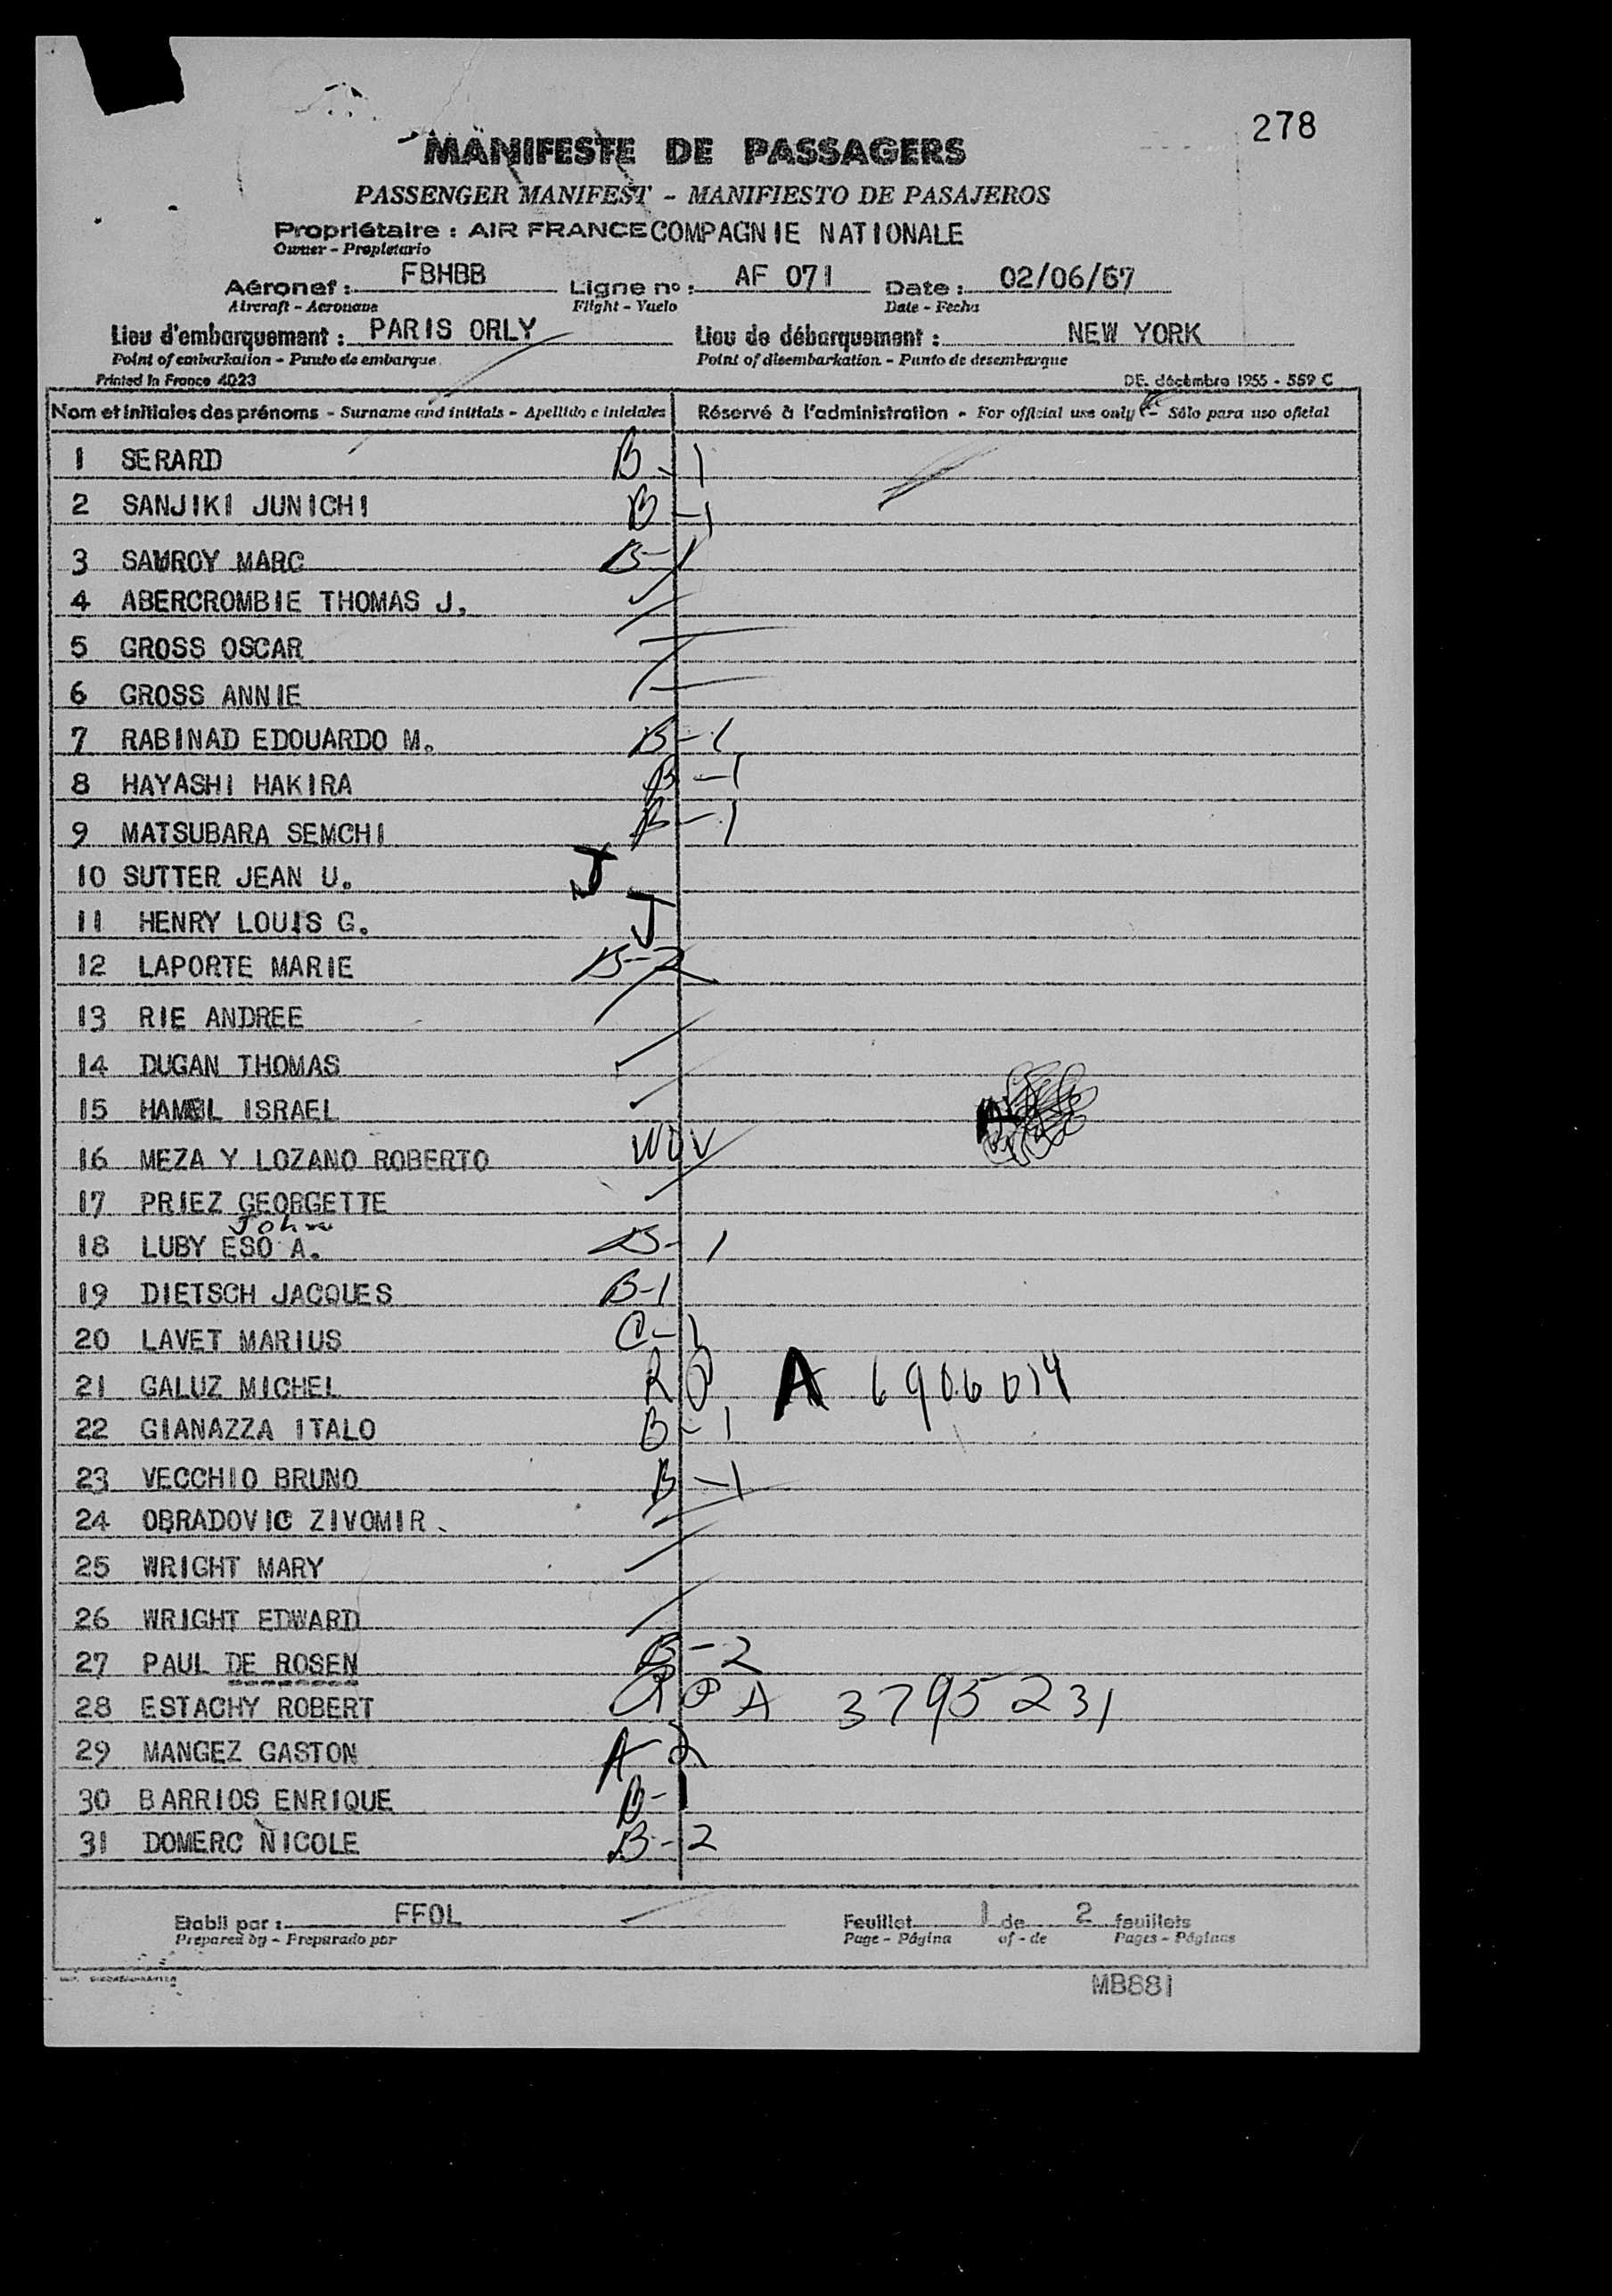 278
MANIFESTE DE PASSAGERS
PASSENGER MANIFEST - MANIFIESTO DE PASAJEROS
Propriétaire : AIR FRANCE COMPAGNIE NATIONALE
Owner - Propietario
Aéronef : FBHBB Ligne nº : AF 071 Date : 02/06/67
Aircraft - Aeronave Flight - Vuelo Date - Fecha
Lieu d'embarquement : PARIS ORLY Lieu de débarquement : NEW YORK
Point of embarkation - Punto de embarque Point of disembarkation - Punto de desembarque
Printed in France 4023 DE. décembre 1955 - 559 C
Nom et initiales des prénoms - Surname and initials - Apellido e iniciales Réservé à l'administration - For official use only - Sólo para uso oficial
1 SERARD B-1
2 SANJIKI JUNICHI B-1
3 SAUROY MARC B-1
4 ABERCROMBIE THOMAS J.
5 GROSS OSCAR
6 GROSS ANNIE
7 RABINAD EDOUARDO M. B-1
8 HAYASHI HAKIRA B-1
9 MATSUBARA SEMCHI B-1
10 SUTTER JEAN U. J
11 HENRY LOUIS G. J
12 LAPORTE MARIE B-2
13 RIE ANDREE
14 DUGAN THOMAS
15 ISRAEL
16 MEZA Y LOZANO ROBERTO WOV
17 PRIEZ GEORGETTE
John
18 LUBY ESO A. B-1
19 DIETSCH JACQUES B-1
20 LAVET MARIUS C-1
21 GALUZ MICHEL RP A 6906014
22 GIANAZZA ITALO B-1
23 VECCHIO BRUNO B-1
24 OBRADOVIC ZIVOMIR
25 WRIGHT MARY
26 WRIGHT EDWARD
27 PAUL DE ROSEN B-2
28 ESTACHY ROBERT RP A 3795231
29 MANGEZ GASTON A-2
30 BARRIOS ENRIQUE B-1
31 DOMERC NICOLE B-2
Etabli par : FFOL Feuillet 1 de 2 feuillets
Prepared by - Preparado por Page - Página of - de Pages - Páginas
MB881